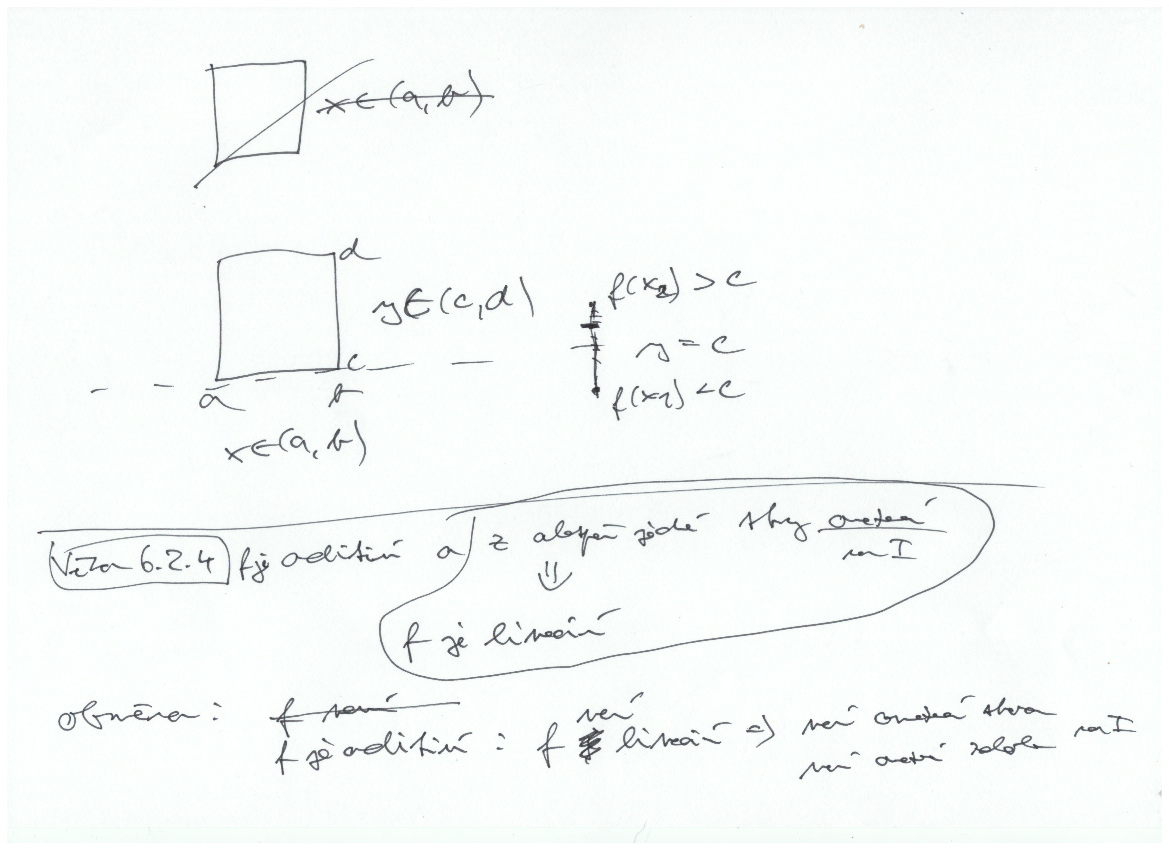 x ∈ (a, b)
d
y ∈ (c, d)
c
a b
x ∈ (a, b)
f(x₂) > c
y = c
f(x₁) < c
Věta 6.2.4 f je aditivní a z alespoň jedné strany omezená
na I
⇓
f je lineární
obměna: f není
není
f je aditivní : f lineární ⇒ není omezená shora
není omezená zdola na I